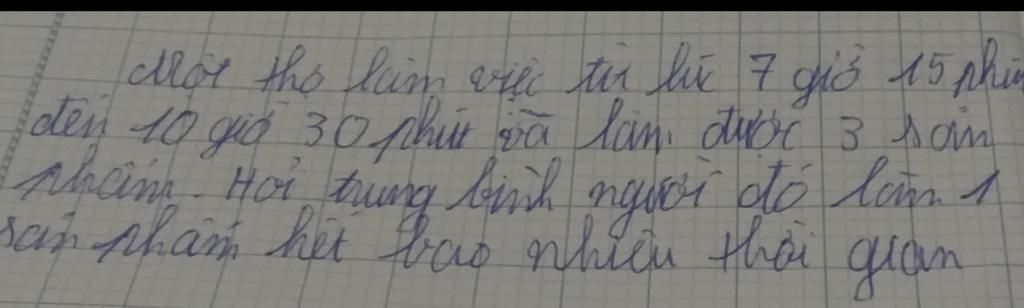 Một thợ làm việc từ lúc 7 giờ 15 phút
đến 10 giờ 30 phút và làm được 3 sản
phẩm. Hỏi trung bình người đó làm 1
sản phẩm hết bao nhiêu thời gian